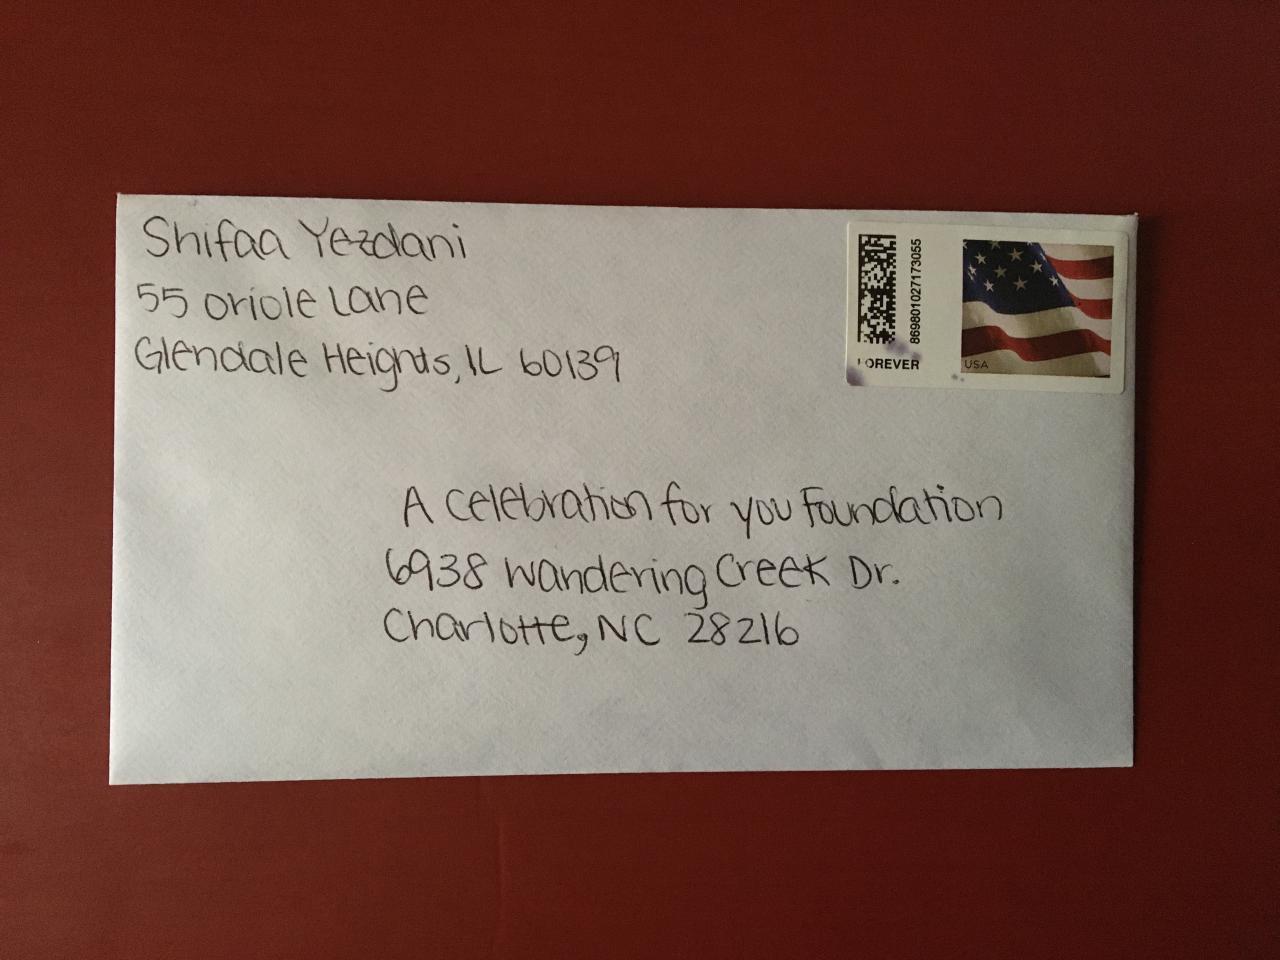 Shifaa Yezdani
55 Oriole Lane
Glendale Heights, IL 60139
869801027173055
FOREVER
USA
A Celebration for you Foundation
6938 Wandering Creek Dr.
Charlotte, NC 28216